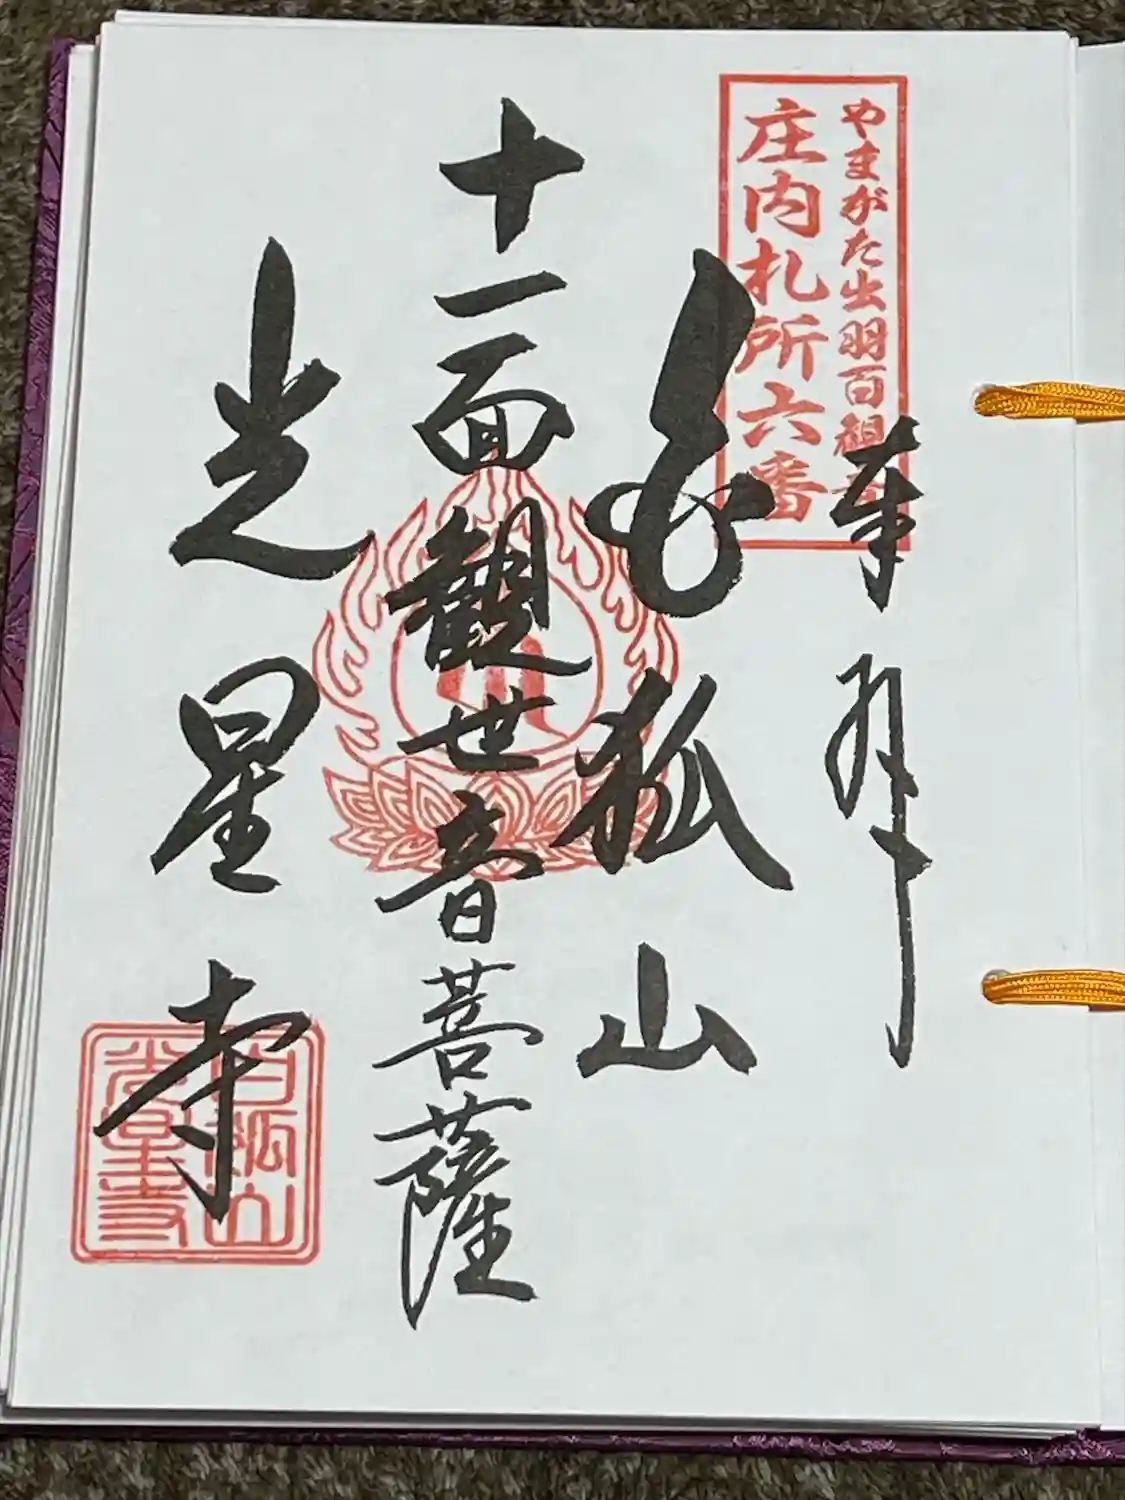 やまがた出羽百観音
庄内札所六番
奉拝
白狐山
十一面観世音菩薩
光星寺
白狐山
光星寺